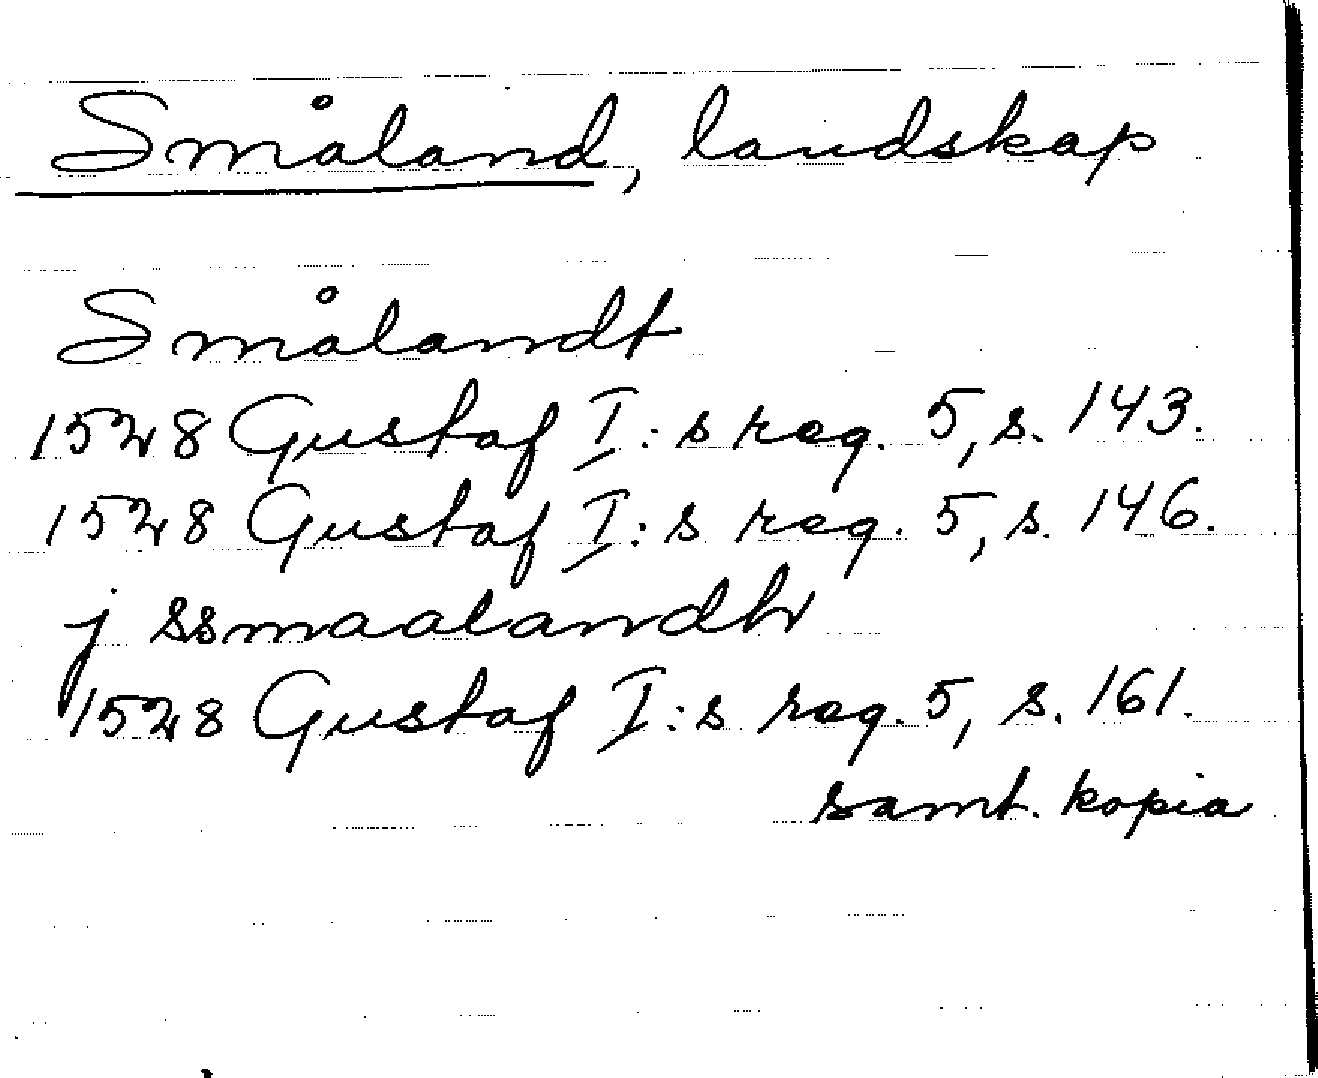 Småland, landskap
Smålandt
1528 Gustaf I:s reg. 5, s. 143.
1528 Gustaf I:s reg. 5, s. 146.
j ssmaalandh
1528 Gustaf I:s reg. 5, s. 161.
samt. kopia